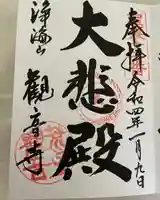 奉拝 令和四年一月九日
大悲殿
浄海山
観音寺